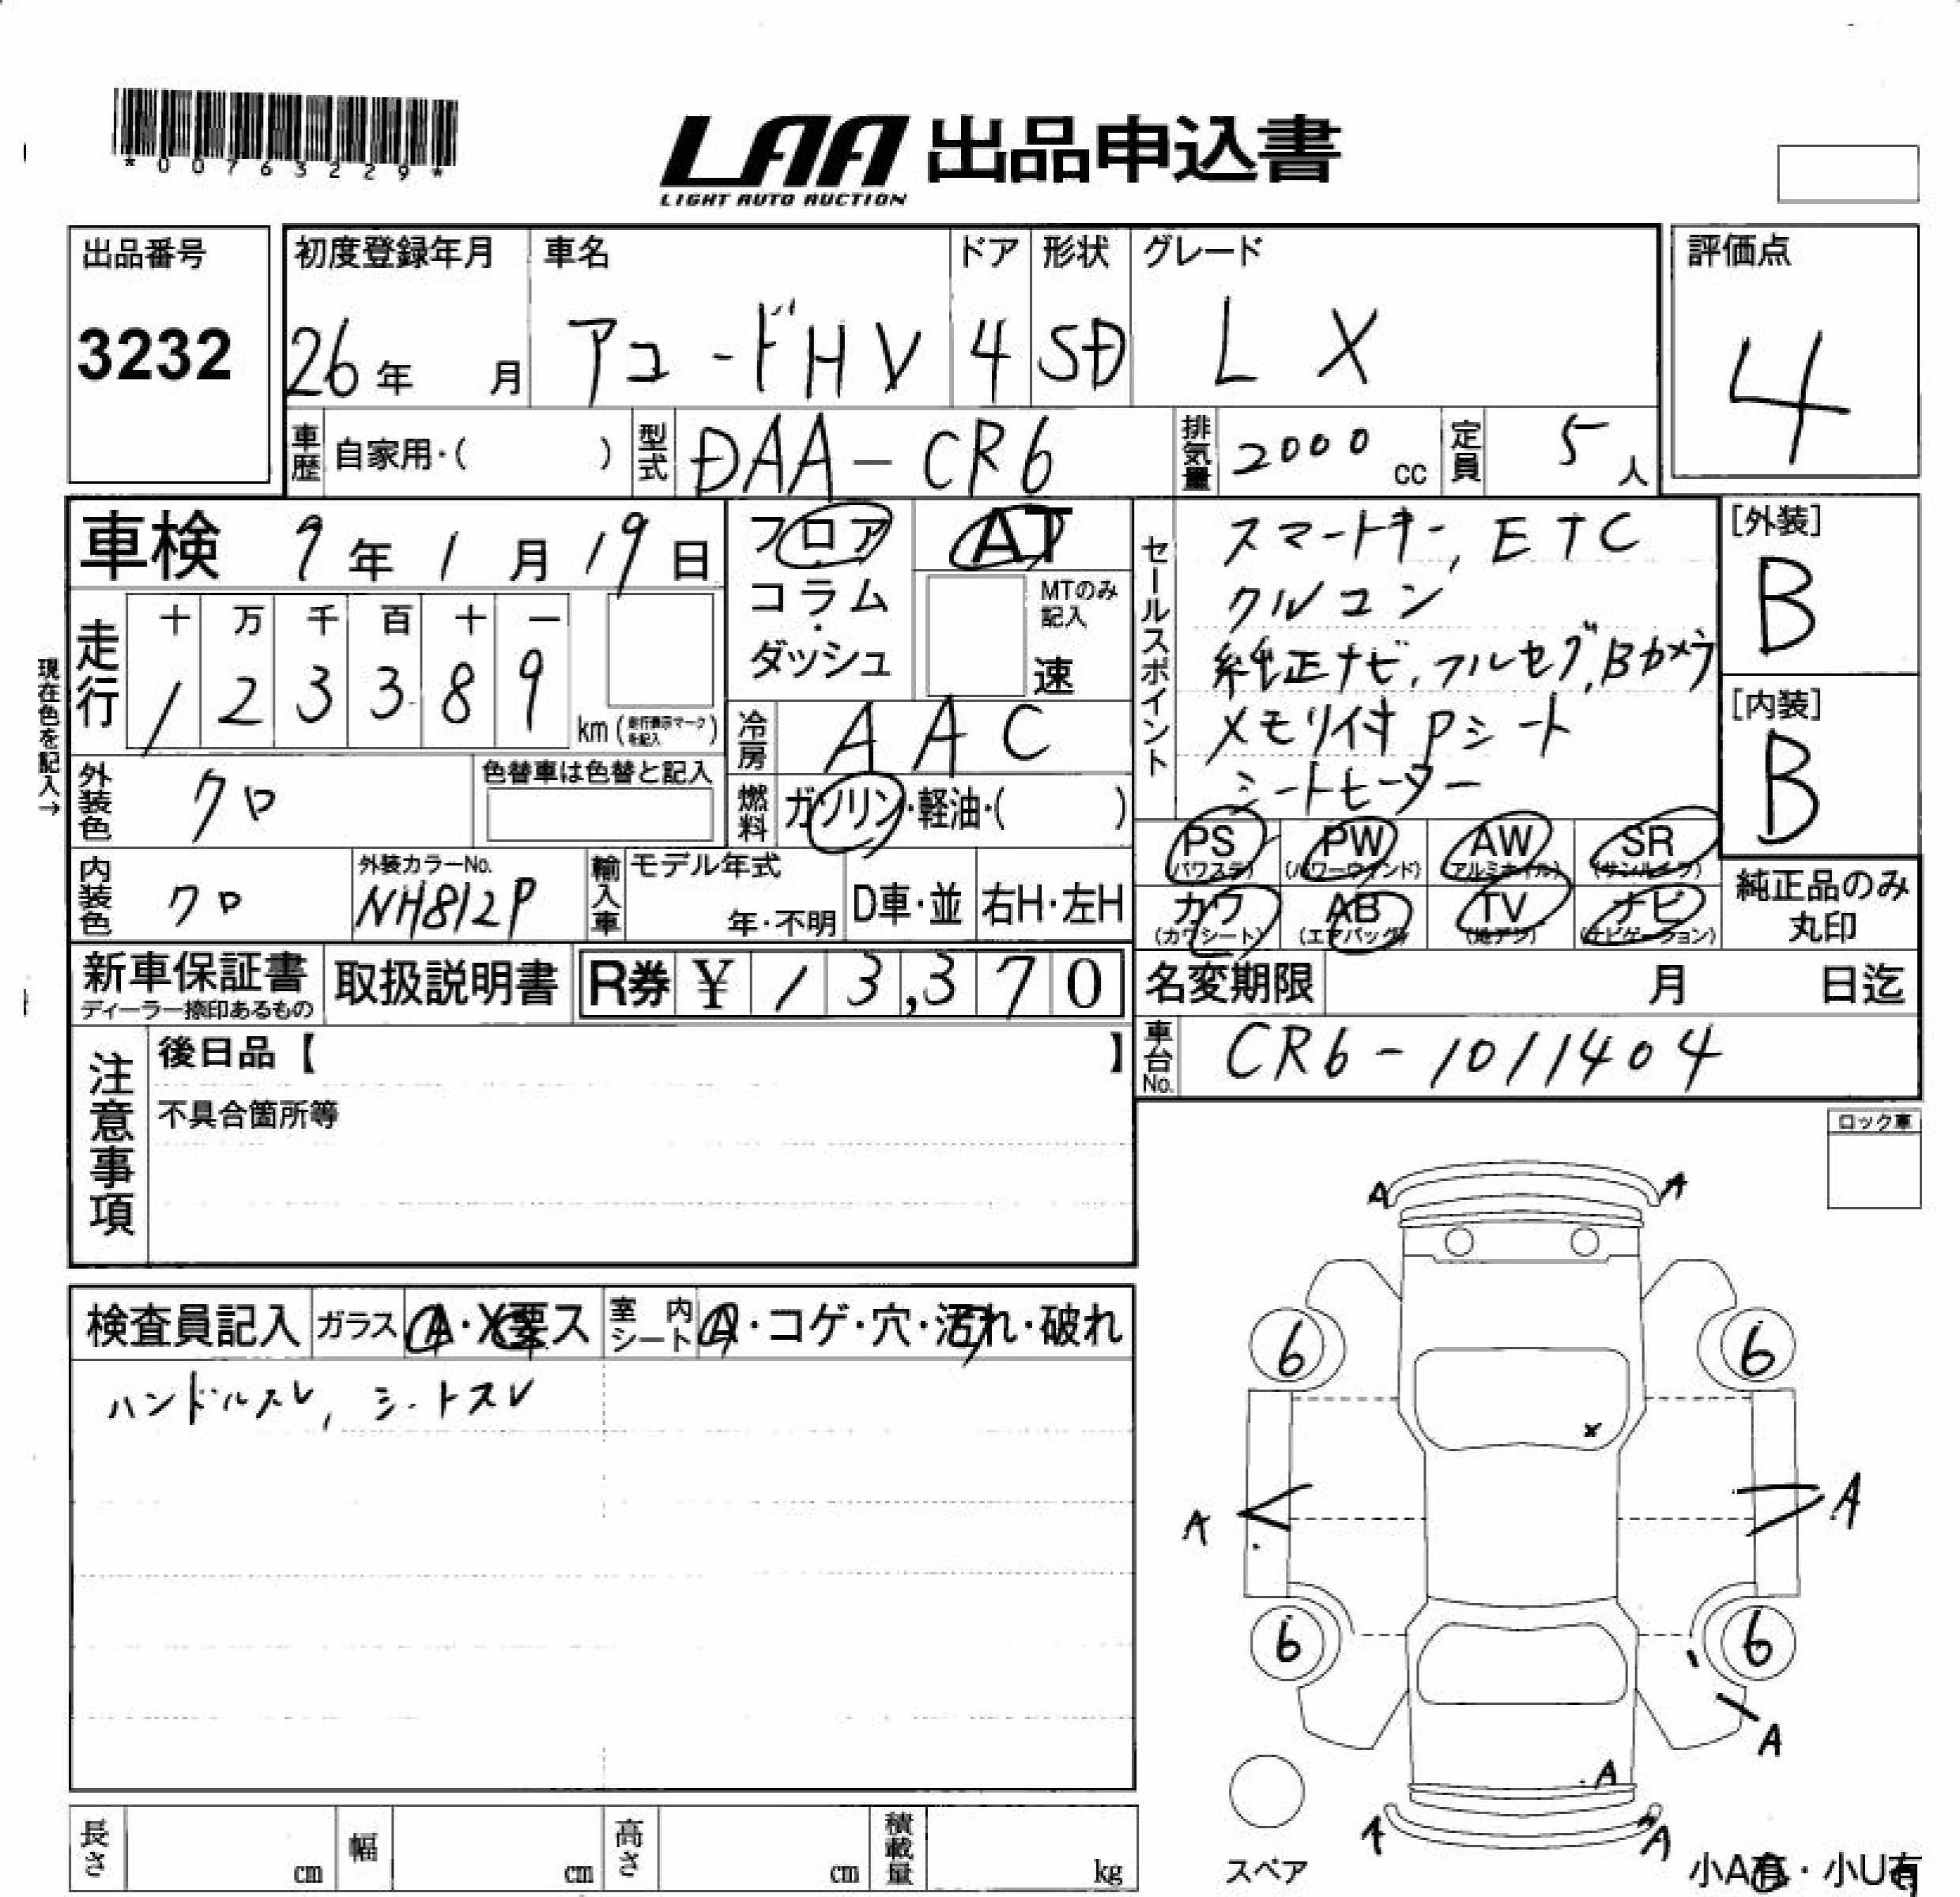 *00763229*
LAA 出品申込書
LIGHT AUTO AUCTION
出品番号
3232
初度登録年月
26年 月
車名
アコードHV
ドア
4
形状
SD
グレード
LX
評価点
4
車歴 自家用・( )
型式 DAA-CR6
排気量 2000 cc
定員 5 人
車検 9年1月19日
フロア
コラム
・
ダッシュ
AT
MTのみ記入
速
セールスポイント
スマートキー, ETC
クルコン
純正ナビ, フルセグ, Bカメラ
メモリ付 Pシート
シートヒーター
[外装]
B
[内装]
B
現在色を記入→
走行
十 万 千 百 十 一
1 2 3 3 8 9
km (走行表示マークを記入)
冷房 AAC
外装色 クロ
色替車は色替と記入
燃料 ガソリン・軽油・( )
PS (パワステ)
PW (パワーウインド)
AW (アルミホイル)
SR (サンルーフ)
内装色 クロ
外装カラーNo.
NH812P
輸入車
モデル年式
年・不明
D車・並
右H・左H
カワ (カワシート)
AB (エアバッグ)
TV (地デジ)
ナビ (ナビゲーション)
純正品のみ
丸印
新車保証書
ディーラー捺印あるもの
取扱説明書
R券 ¥ 13,370
名変期限 月 日迄
注意事項
後日品【 】
不具合箇所等
車台No. CR6-1011404
ロック車
検査員記入
ガラス A・X要ス
室内シート A・コゲ・穴・汚れ・破れ
ハンドルスレ, シートスレ
A A
6 6
X
A A
6 6
A
A
A A
スペア
小A有・小U有
長さ cm
幅 cm
高さ cm
積載量 kg